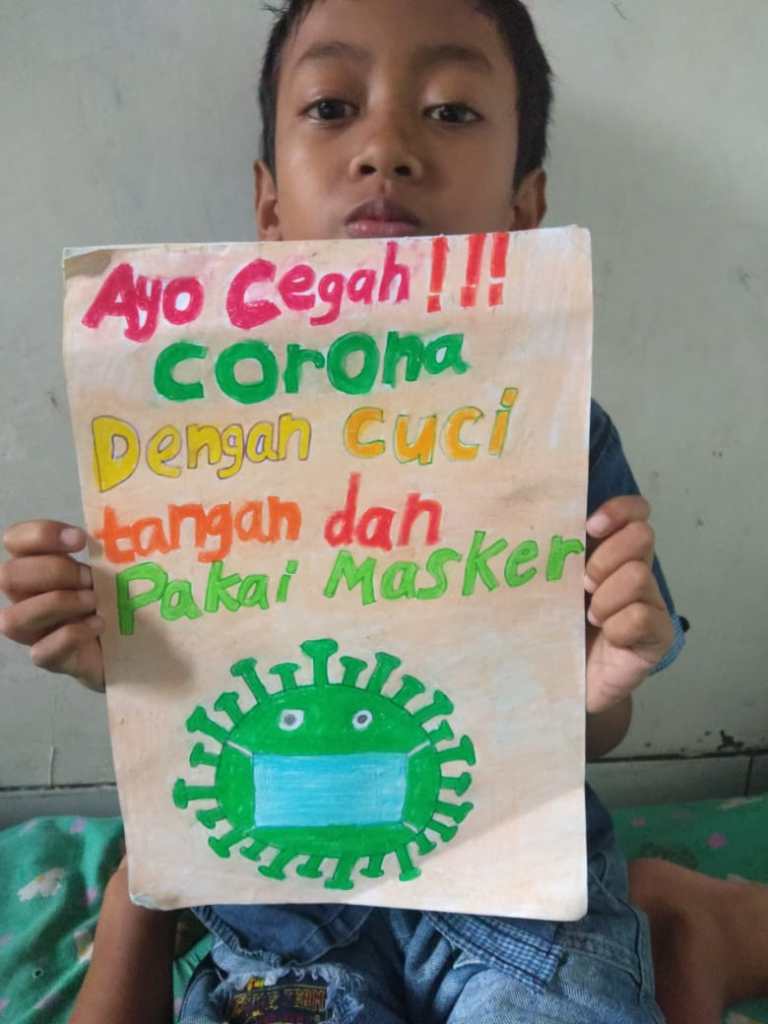 Ayo Cegah!!!
Corona
Dengan cuci
tangan dan
Pakai Masker